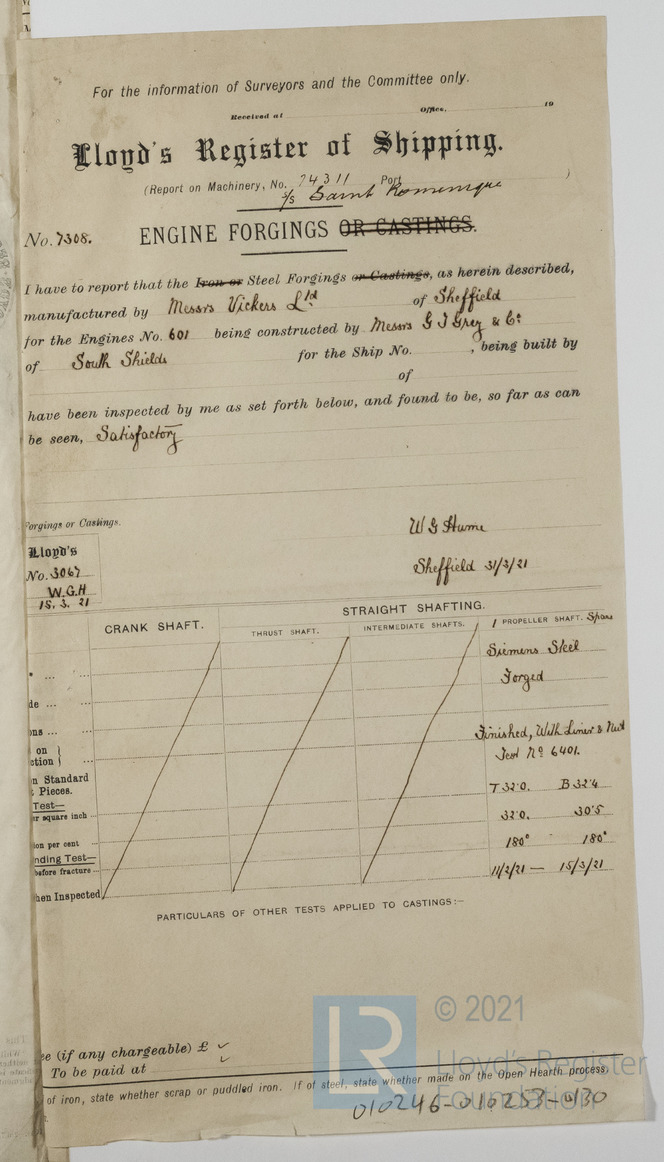 For the information of Surveyors and the Committee only.
Received at Office, 19
Lloyd's Register of Shipping.
(Report on Machinery, No. 74311 Port )
S/S Saint
No. 7308. ENGINE FORGINGS OR CASTINGS.
I have to report that the Iron or Steel Forgings or Castings, as herein described,
manufactured by Messrs Vickers Ltd. of Sheffield
for the Engines No. 601 being constructed by Messrs G T Grey & Co
of South Shields for the Ship No. , being built by
of
have been inspected by me as set forth below, and found to be, so far as can
be seen, Satisfactory
Forgings or Castings.
W G Hume
Sheffield 31/3/21
Lloyd's
No. 3067
W.G.H
15. 3. 21
STRAIGHT SHAFTING.
CRANK SHAFT. THRUST SHAFT. INTERMEDIATE SHAFTS. 1 PROPELLER SHAFT. Spare
Siemens Steel
de ... ... Forged
ons ... ... Finished, With Liner & Nut
on
ction Test No 6401.
n Standard
Pieces. T 32.0. B 32.4
Test—
er square inch ... 32.0. 30.5
ion per cent ... 180° 180°
nding Test—
before fracture ... 11/2/21 — 15/3/21
hen Inspected
PARTICULARS OF OTHER TESTS APPLIED TO CASTINGS:—
ee (if any chargeable) £ ✓
To be paid at ✓
of iron, state whether scrap or puddled iron. If of steel, state whether made on the Open Hearth process,
010246-010253-0130
LR
© 2021
Lloyd's Register
Foundation